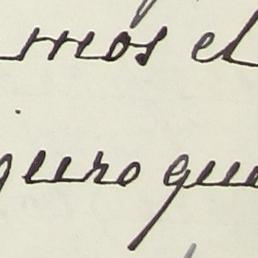 mos el
guro que